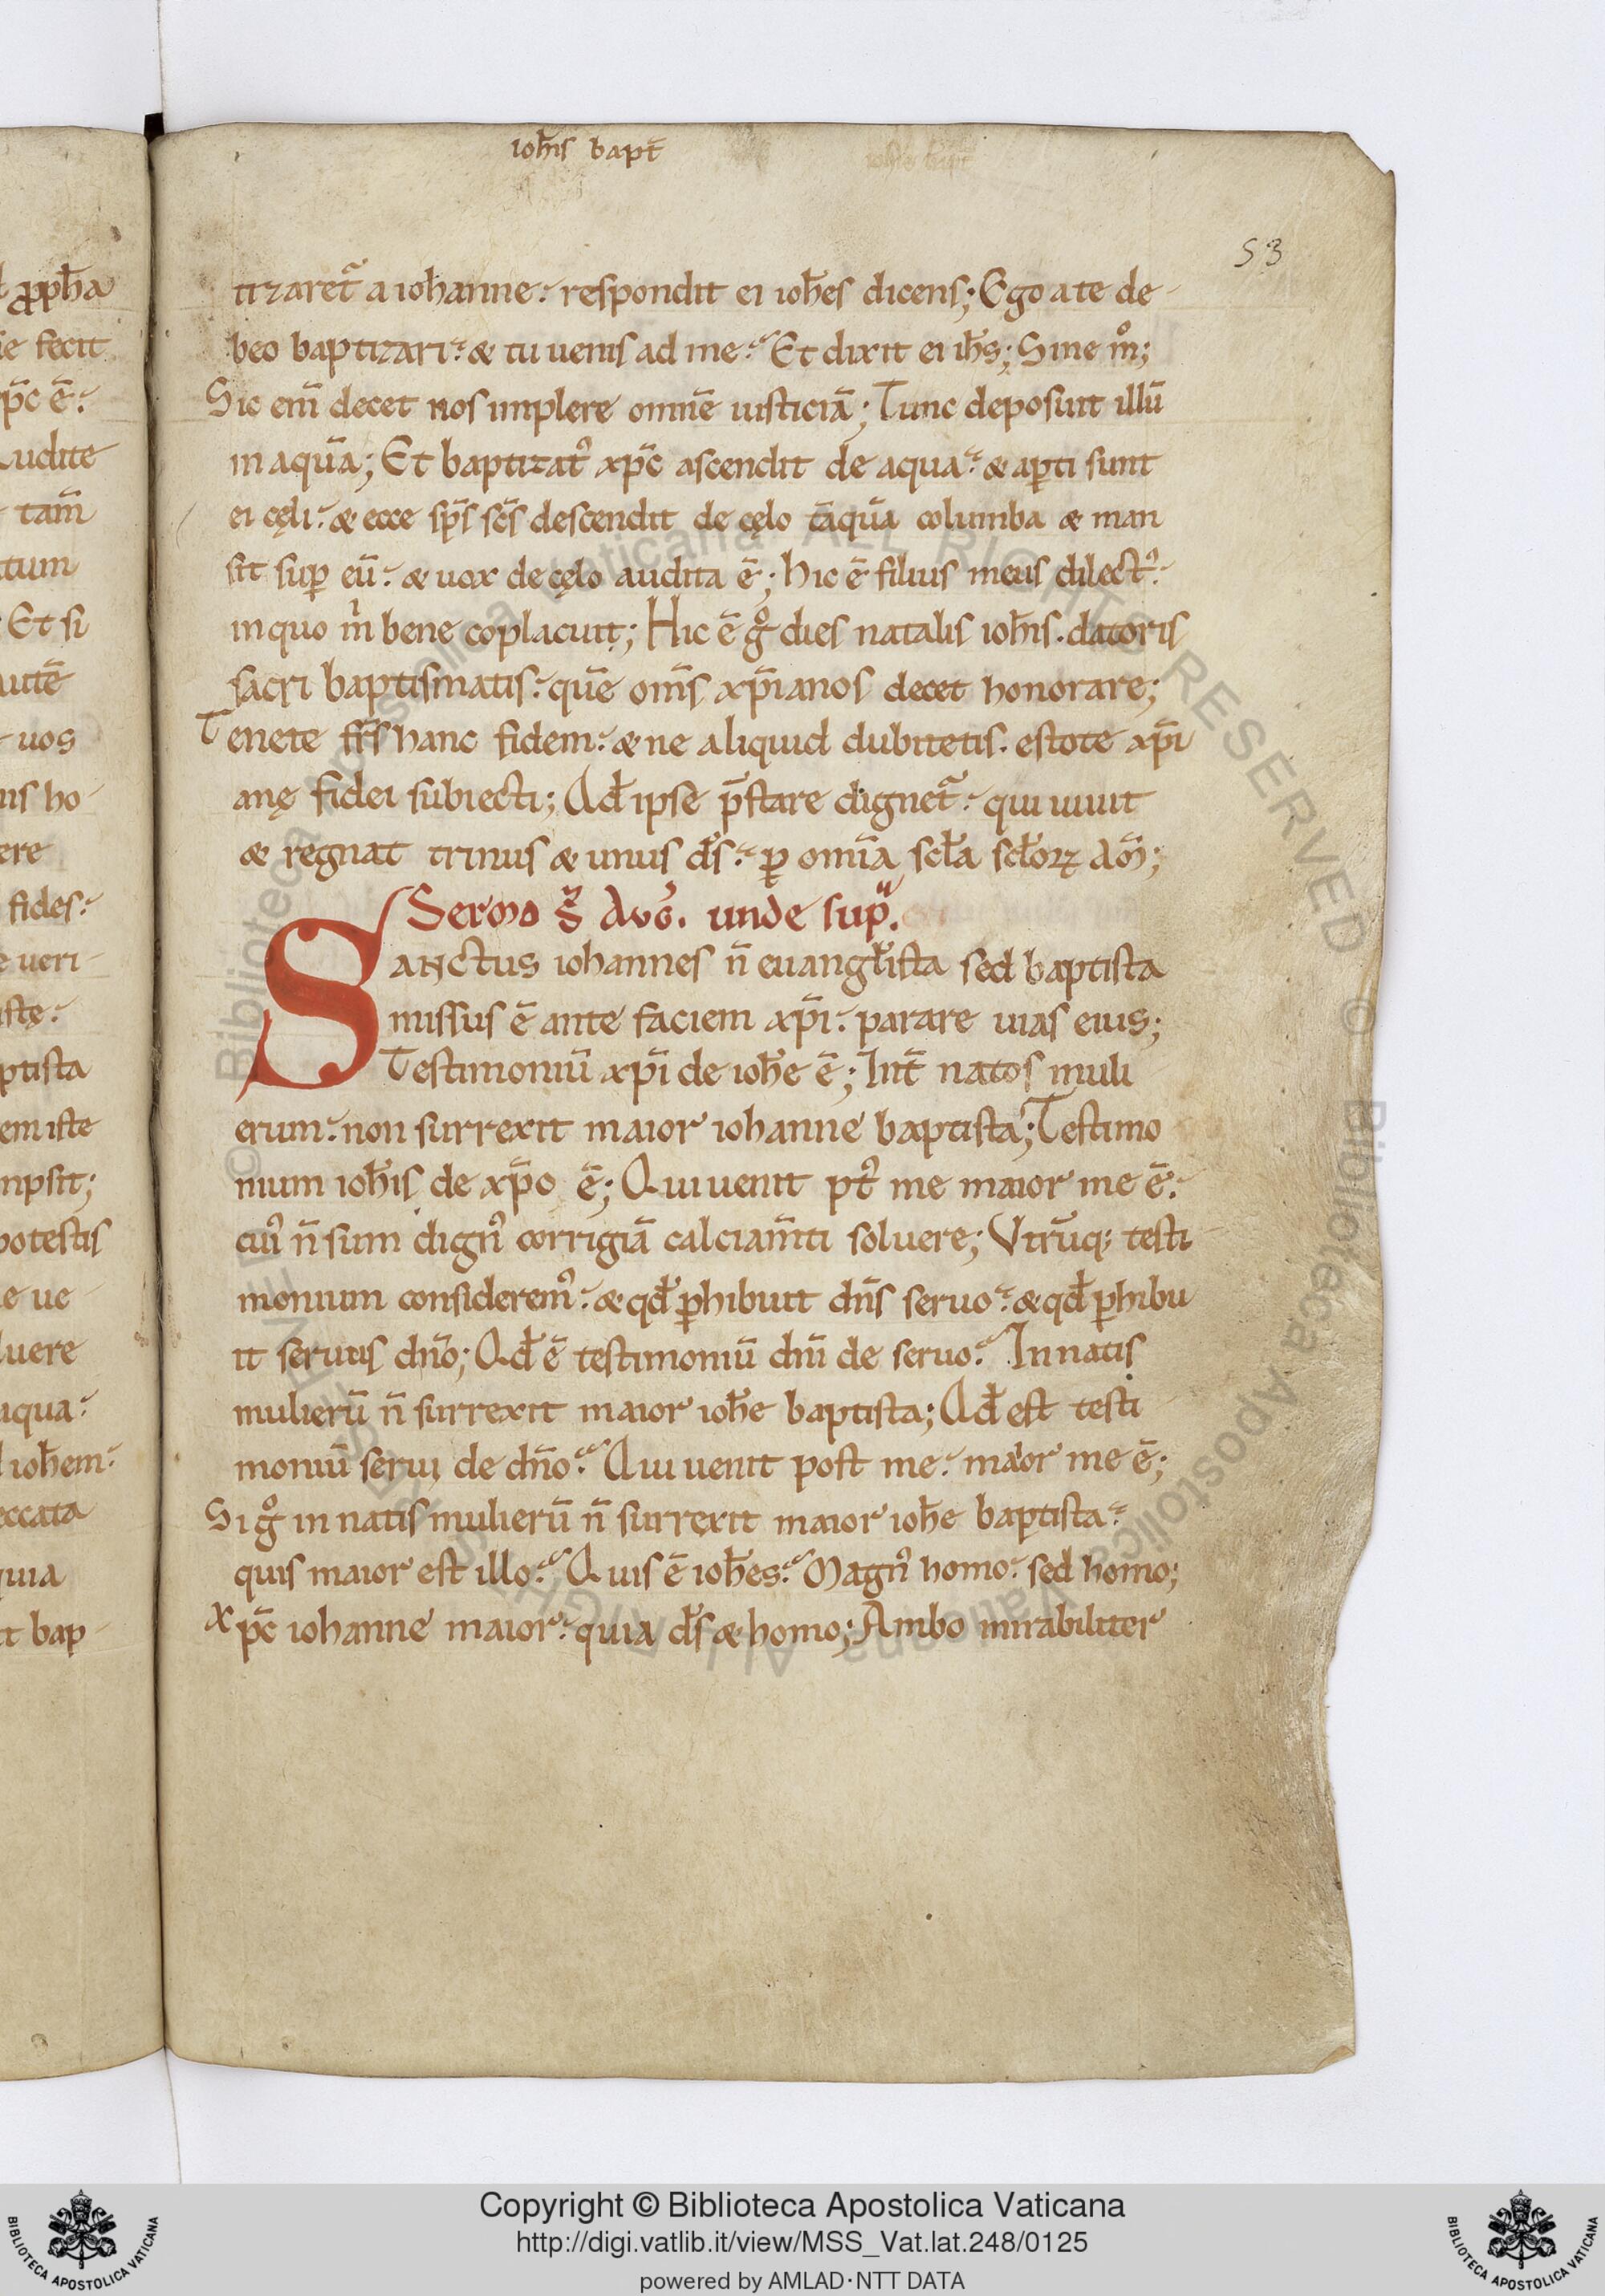 ioh̅is bapt̅
53
tizaret᷑ a iohanne. respondit ei ioh̅es dicens; Ego a te de
beo baptizari. & tu uenis ad me. Et dixit ei ih̅s; Sine m̊;
Sic eni̅ decet nos implere omne̅ iusticia̅; Tunc deposuit illu̅
in aqua̅; Et baptizatꝰ xp̅c ascendit de aqua. & ap̲ti sunt
ei cęli. & ecce sp̅s sc̅s descendit de cęlo ta̅qua̅ columba & man
sit sup̲ eu̅. & uox de cęlo audita e̅; hic e̅ filius meus dilectꝰ.
in quo m̍ bene coplacuit; Hic e̅ g̊ dies natalis ioh̅is. datoris
sacri baptismatis. que̅ om̅s xp̅ianos decet honorare;
Tenete fr̅s hanc fidem. & ne aliquid dubitetis. estote xp̅i
anę fidei subiecti; Qd̅ ipse p̅stare dignet᷑. qui uiuit
& regnat trinus & unus d̅s. p̲ omi̅a scl̅a scl̅oꝝ Am̅;
Sermo s̅ Aug̅. unde supᷓ.
SANCTUS iohannes n̅ euangl̅ista sed baptista
missus e̅ ante faciem xp̅i. parare uias eius;
Testimoniu̅ xp̅i de ioh̅e e̅; Int̅ natos muli
erum. non surrexit maior iohanne baptista; Testimo
nium ioh̅is de xp̅o e̅; Qui uenit pꝰt me maior me e̅.
cuiꝰ n̅ sum dignꝰ corrigia̅ calciam̅ti soluere; Vtru̅q; testi
monium consideremꝰ. & qd̅ p̲hibuit dn̅s seruo. & qd̅ p̲hibu
it seruus dn̅o; Qd̅ e̅ testimoniu̅ dn̅i de seruo. In natis
mulieru̅ n̅ surrexit maior ioh̅e baptista; Qd̅ est testi
moniu̅ serui de dn̅o. Qui uenit post me. maior me e̅;
Si g̊ in natis mulieru̅ n̅ surrexit maior ioh̅e baptista.
quis maior est illo. Quis e̅ ioh̅es. Magnꝰ homo. sed homo;
Xp̅c iohanne maior. quia d̅s & homo; Ambo mirabiliter
ꝓph̅a
fecit
xp̅c e̅.
Audite
tam̅
Et si
uos
ho
ere
fides.
ueri
istę.
ptista
em iste
mpsit;
potestis
e ue
luere
aqua.
ioh̅em.
eccata
quia
bap
© Biblioteca Apostolica Vaticana ALL RIGHTS RESERVED
Copyright © Biblioteca Apostolica Vaticana
http://digi.vatlib.it/view/MSS_Vat.lat.248/0125
powered by AMLAD·NTT DATA
BIBLIOTECA APOSTOLICA VATICANA
BIBLIOTECA APOSTOLICA VATICANA